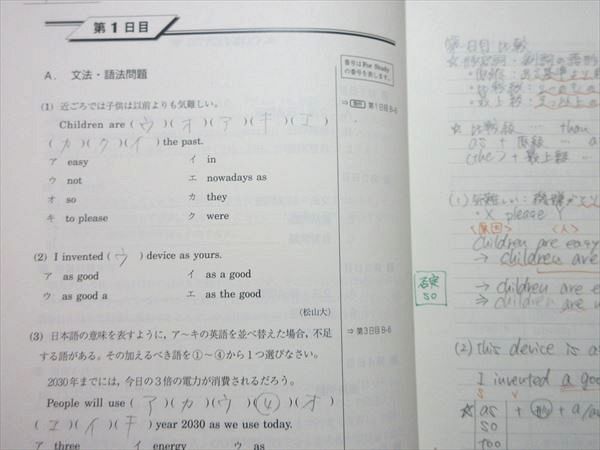 第1日目
番号はFor Study
の番号を表します。
A. 文法・語法問題
(1) 近ごろでは子供は以前よりも気難しい。
⇒ 第1日目B-6
Children are ( ウ )( オ )( ア )( キ )( エ )
( カ )( ク )( イ ) the past.
ア easy イ in
ウ not エ nowadays as
オ so カ they
キ to please ク were
(2) I invented ( ウ ) device as yours.
ア as good イ as a good
ウ as good a エ as the good
(松山大)
(3) 日本語の意味を表すように，ア〜キの英語を並べ替えた場合，不足
⇒ 第3日目B-6
する語がある。その加えるべき語を①〜④から1つ選びなさい。
2030年までには，今日の3倍の電力が消費されるだろう。
People will use ( ア )( カ )( ウ )( ④ )( オ )
( エ )( イ )( キ ) year 2030 as we use today.
ア three イ energy ウ as
第1日目 比較
☆ 比較級 … than
as + 原級 … as
(the) + 最上級 …
(1) 気難しい：機嫌が
・X please Y
<原因> <人>
Children are easy
→ children are
否定
so
→ children are e
→ children are
(2) This device is a
I invented a good
S V
☆ as + 形 + a/a
so
too